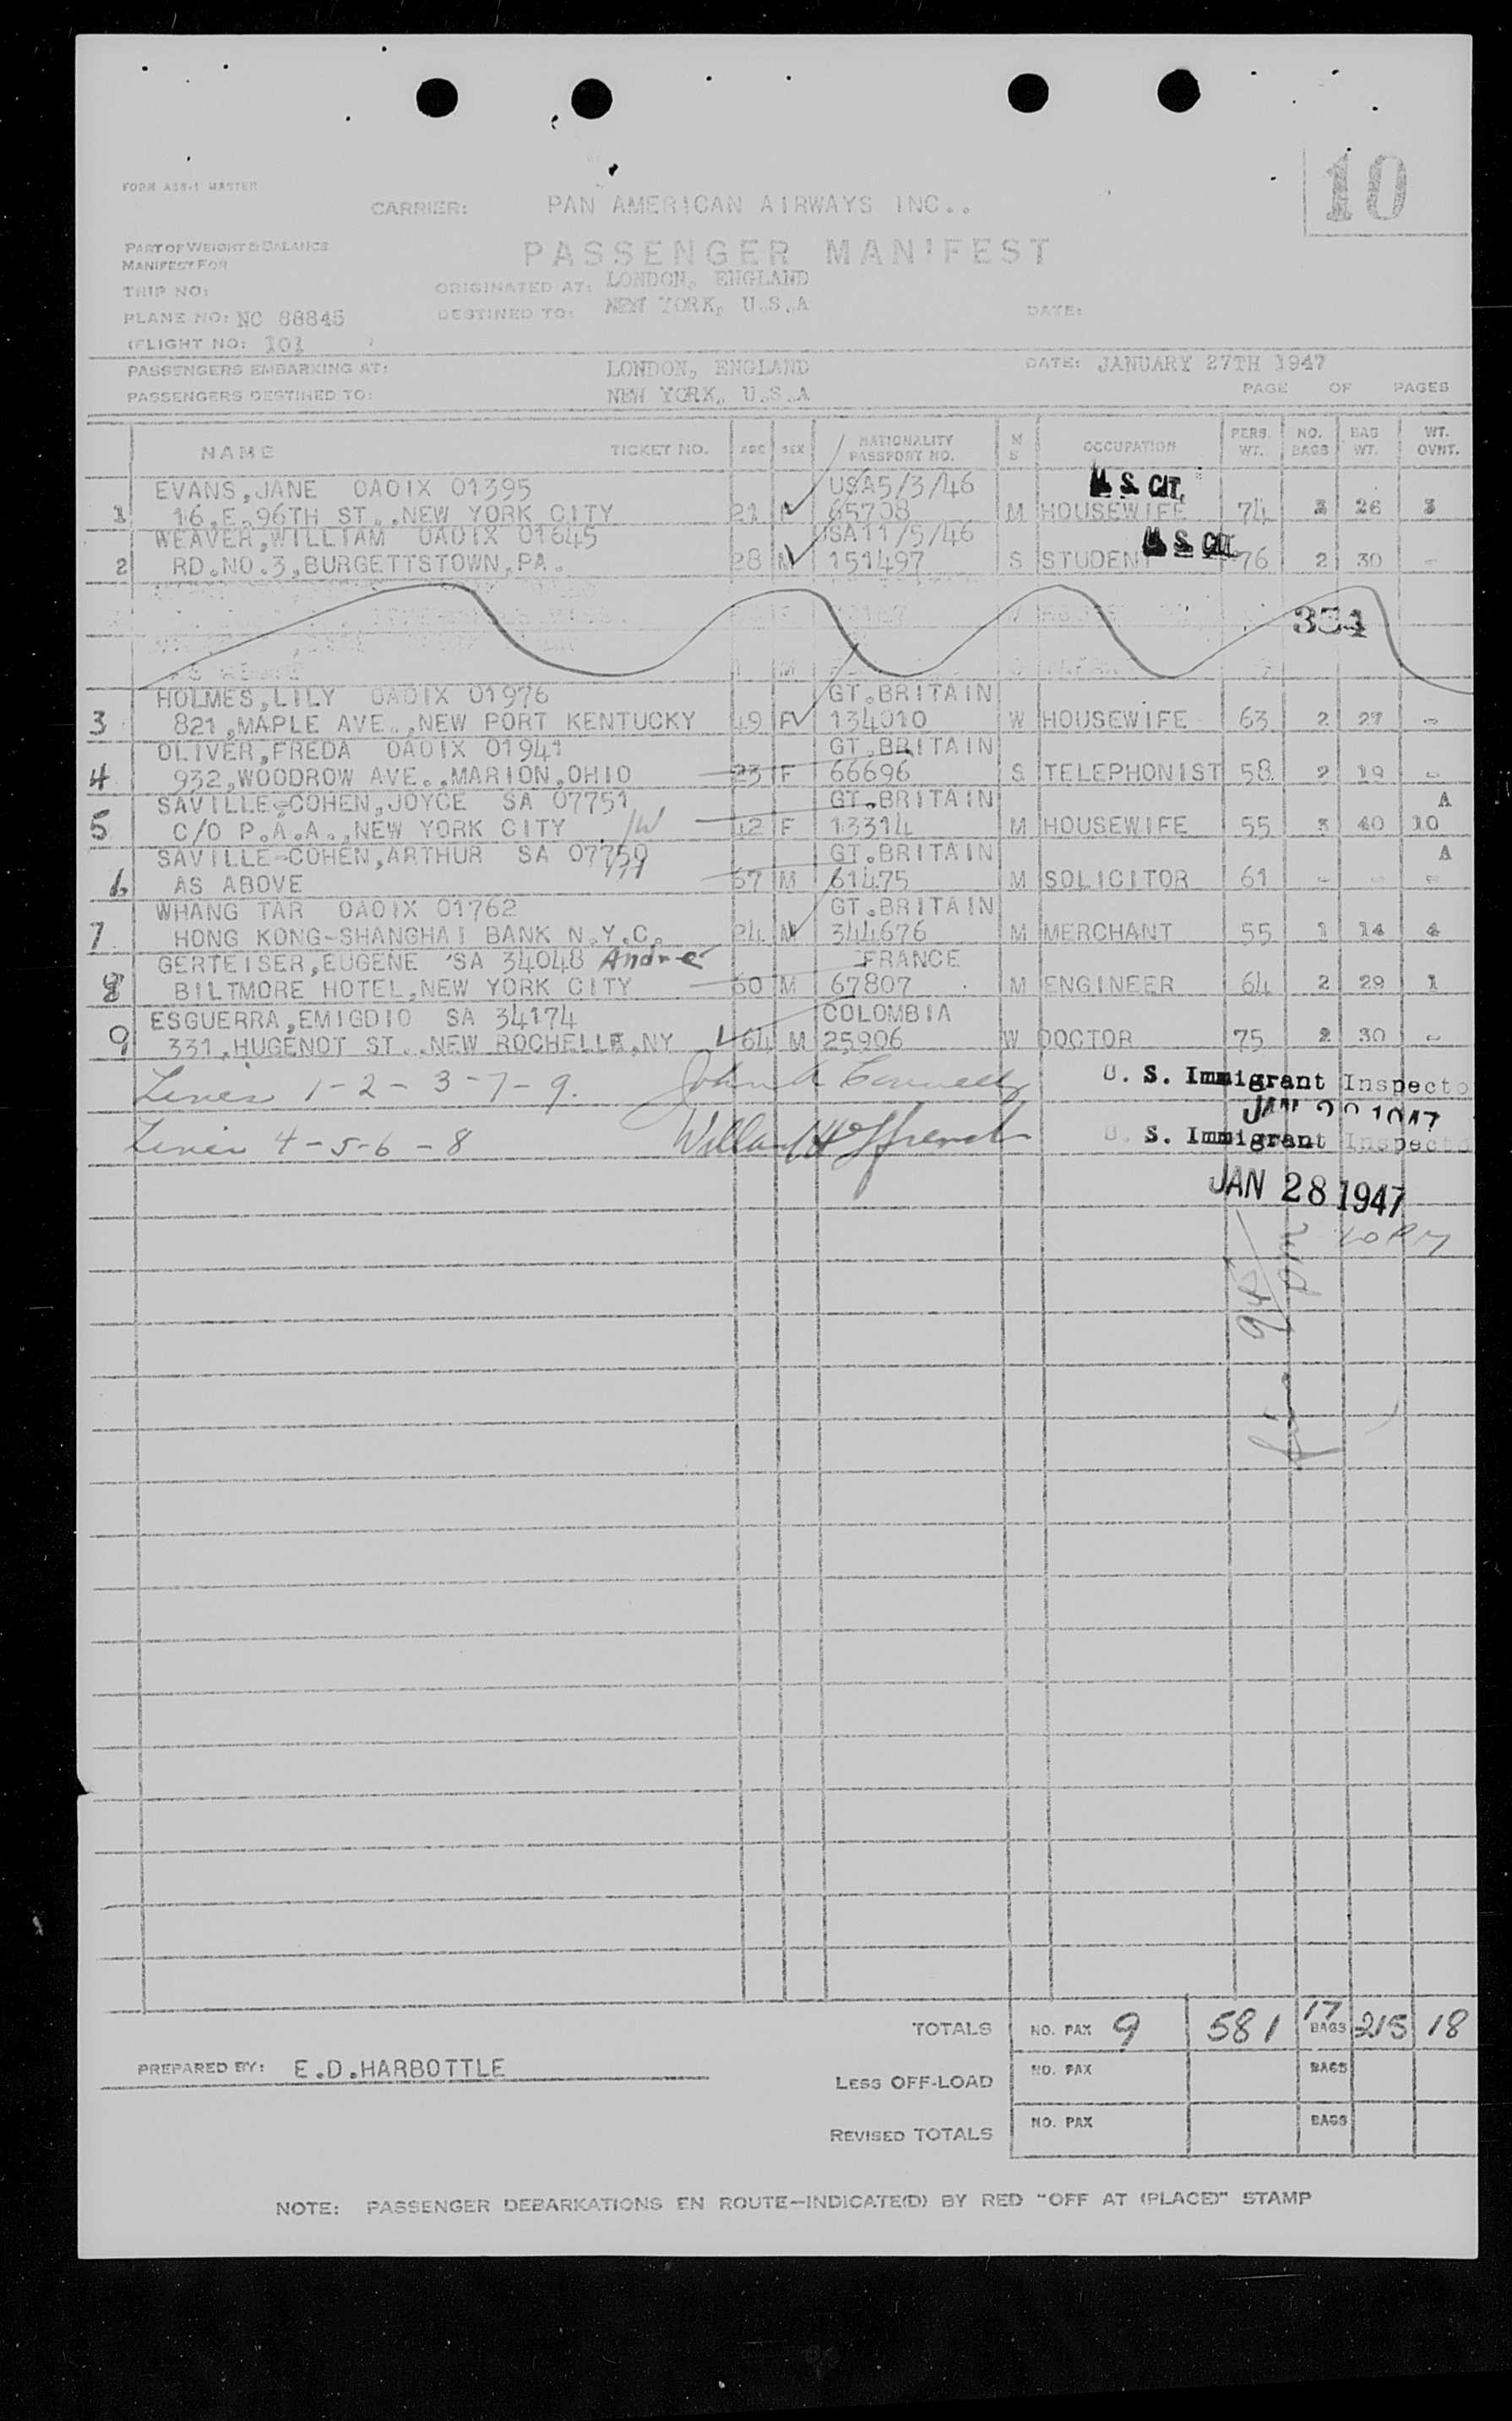 10
FORM ASS-1 MASTER
CARRIER: PAN AMERICAN AIRWAYS INC..
PART OF WEIGHT & BALANCE
MANIFEST FOR
PASSENGER MANIFEST
TRIP NO:
ORIGINATED AT: LONDON, ENGLAND
PLANE NO: NC 88845
DESTINED TO: NEW YORK, U.S.A
DATE:
(FLIGHT NO: 101 )
PASSENGERS EMBARKING AT: LONDON, ENGLAND DATE: JANUARY 27TH 1947
PASSENGERS DESTINED TO: NEW YORK, U.S.A PAGE OF PAGES
NAME TICKET NO. AGE SEX NATIONALITY PASSPORT NO. M S OCCUPATION PERS. WT. NO. BAGS BAG WT. WT. OVWT.
EVANS,JANE OAOIX 01395 USA5/3/46 U.S. CIT.
1 16,E.96TH ST.,NEW YORK CITY 21 F 65708 M HOUSEWIFE 74 3 26 3
WEAVER,WILLIAM OAOIX 01645 USA11/5/46 U.S. CIT.
2 RD.NO.3,BURGETTSTOWN,PA. 28 M 151497 S STUDENT 76 2 30 -
354
AS ABOVE M
HOLMES,LILY OAOIX 01976 GT.BRITAIN
3 821,MAPLE AVE.,NEW PORT KENTUCKY 49 F 134010 W HOUSEWIFE 63 2 27 -
OLIVER,FREDA OAOIX 01941 GT.BRITAIN
4 932,WOODROW AVE.,MARION,OHIO 23 F 66696 S TELEPHONIST 58 2 19 -
SAVILLE-COHEN,JOYCE SA 07751 GT.BRITAIN A
5 C/O P.A.A.,NEW YORK CITY 42 F 13314 M HOUSEWIFE 55 3 40 10
SAVILLE-COHEN,ARTHUR SA 07750 GT.BRITAIN A
6 AS ABOVE 67 M 61475 M SOLICITOR 61 - - -
WHANG TAR OAOIX 01762 GT.BRITAIN
7 HONG KONG-SHANGHAI BANK N.Y.C. 24 M 344676 M MERCHANT 55 1 14 4
GERTEISER,EUGENE SA 34048 André FRANCE
8 BILTMORE HOTEL,NEW YORK CITY 60 M 67807 M ENGINEER 64 2 29 1
ESGUERRA,EMIGDIO SA 34174 COLOMBIA
9 331,HUGENOT ST..NEW ROCHELLE,NY 64 M 25906 W DOCTOR 75 2 30 -
Lines 1-2-3-7-9. John A Connelly U. S. Immigrant Inspecto
JAN 1947
Lines 4-5-6-8 U. S. Immigrant Inspecto
JAN 28 1947
945 pm
TOTALS NO. PAX 9 581 17 BAGS 215 18
PREPARED BY: E.D.HARBOTTLE
LESS OFF-LOAD NO. PAX BAGS
REVISED TOTALS NO. PAX BAGS
NOTE: PASSENGER DEBARKATIONS EN ROUTE-INDICATE(D) BY RED "OFF AT (PLACE)" STAMP